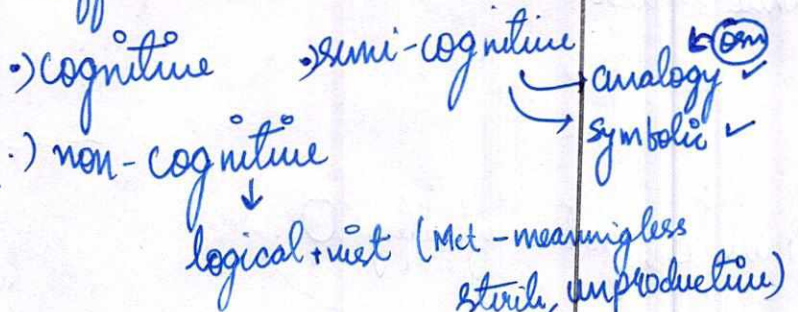 •) cognitive •) semi-cognitive
→ analogy ✓
→ symbolic ✓
•) non-cognitive
↓
logical +vist (Met - meaningless
sterile, unproductive)